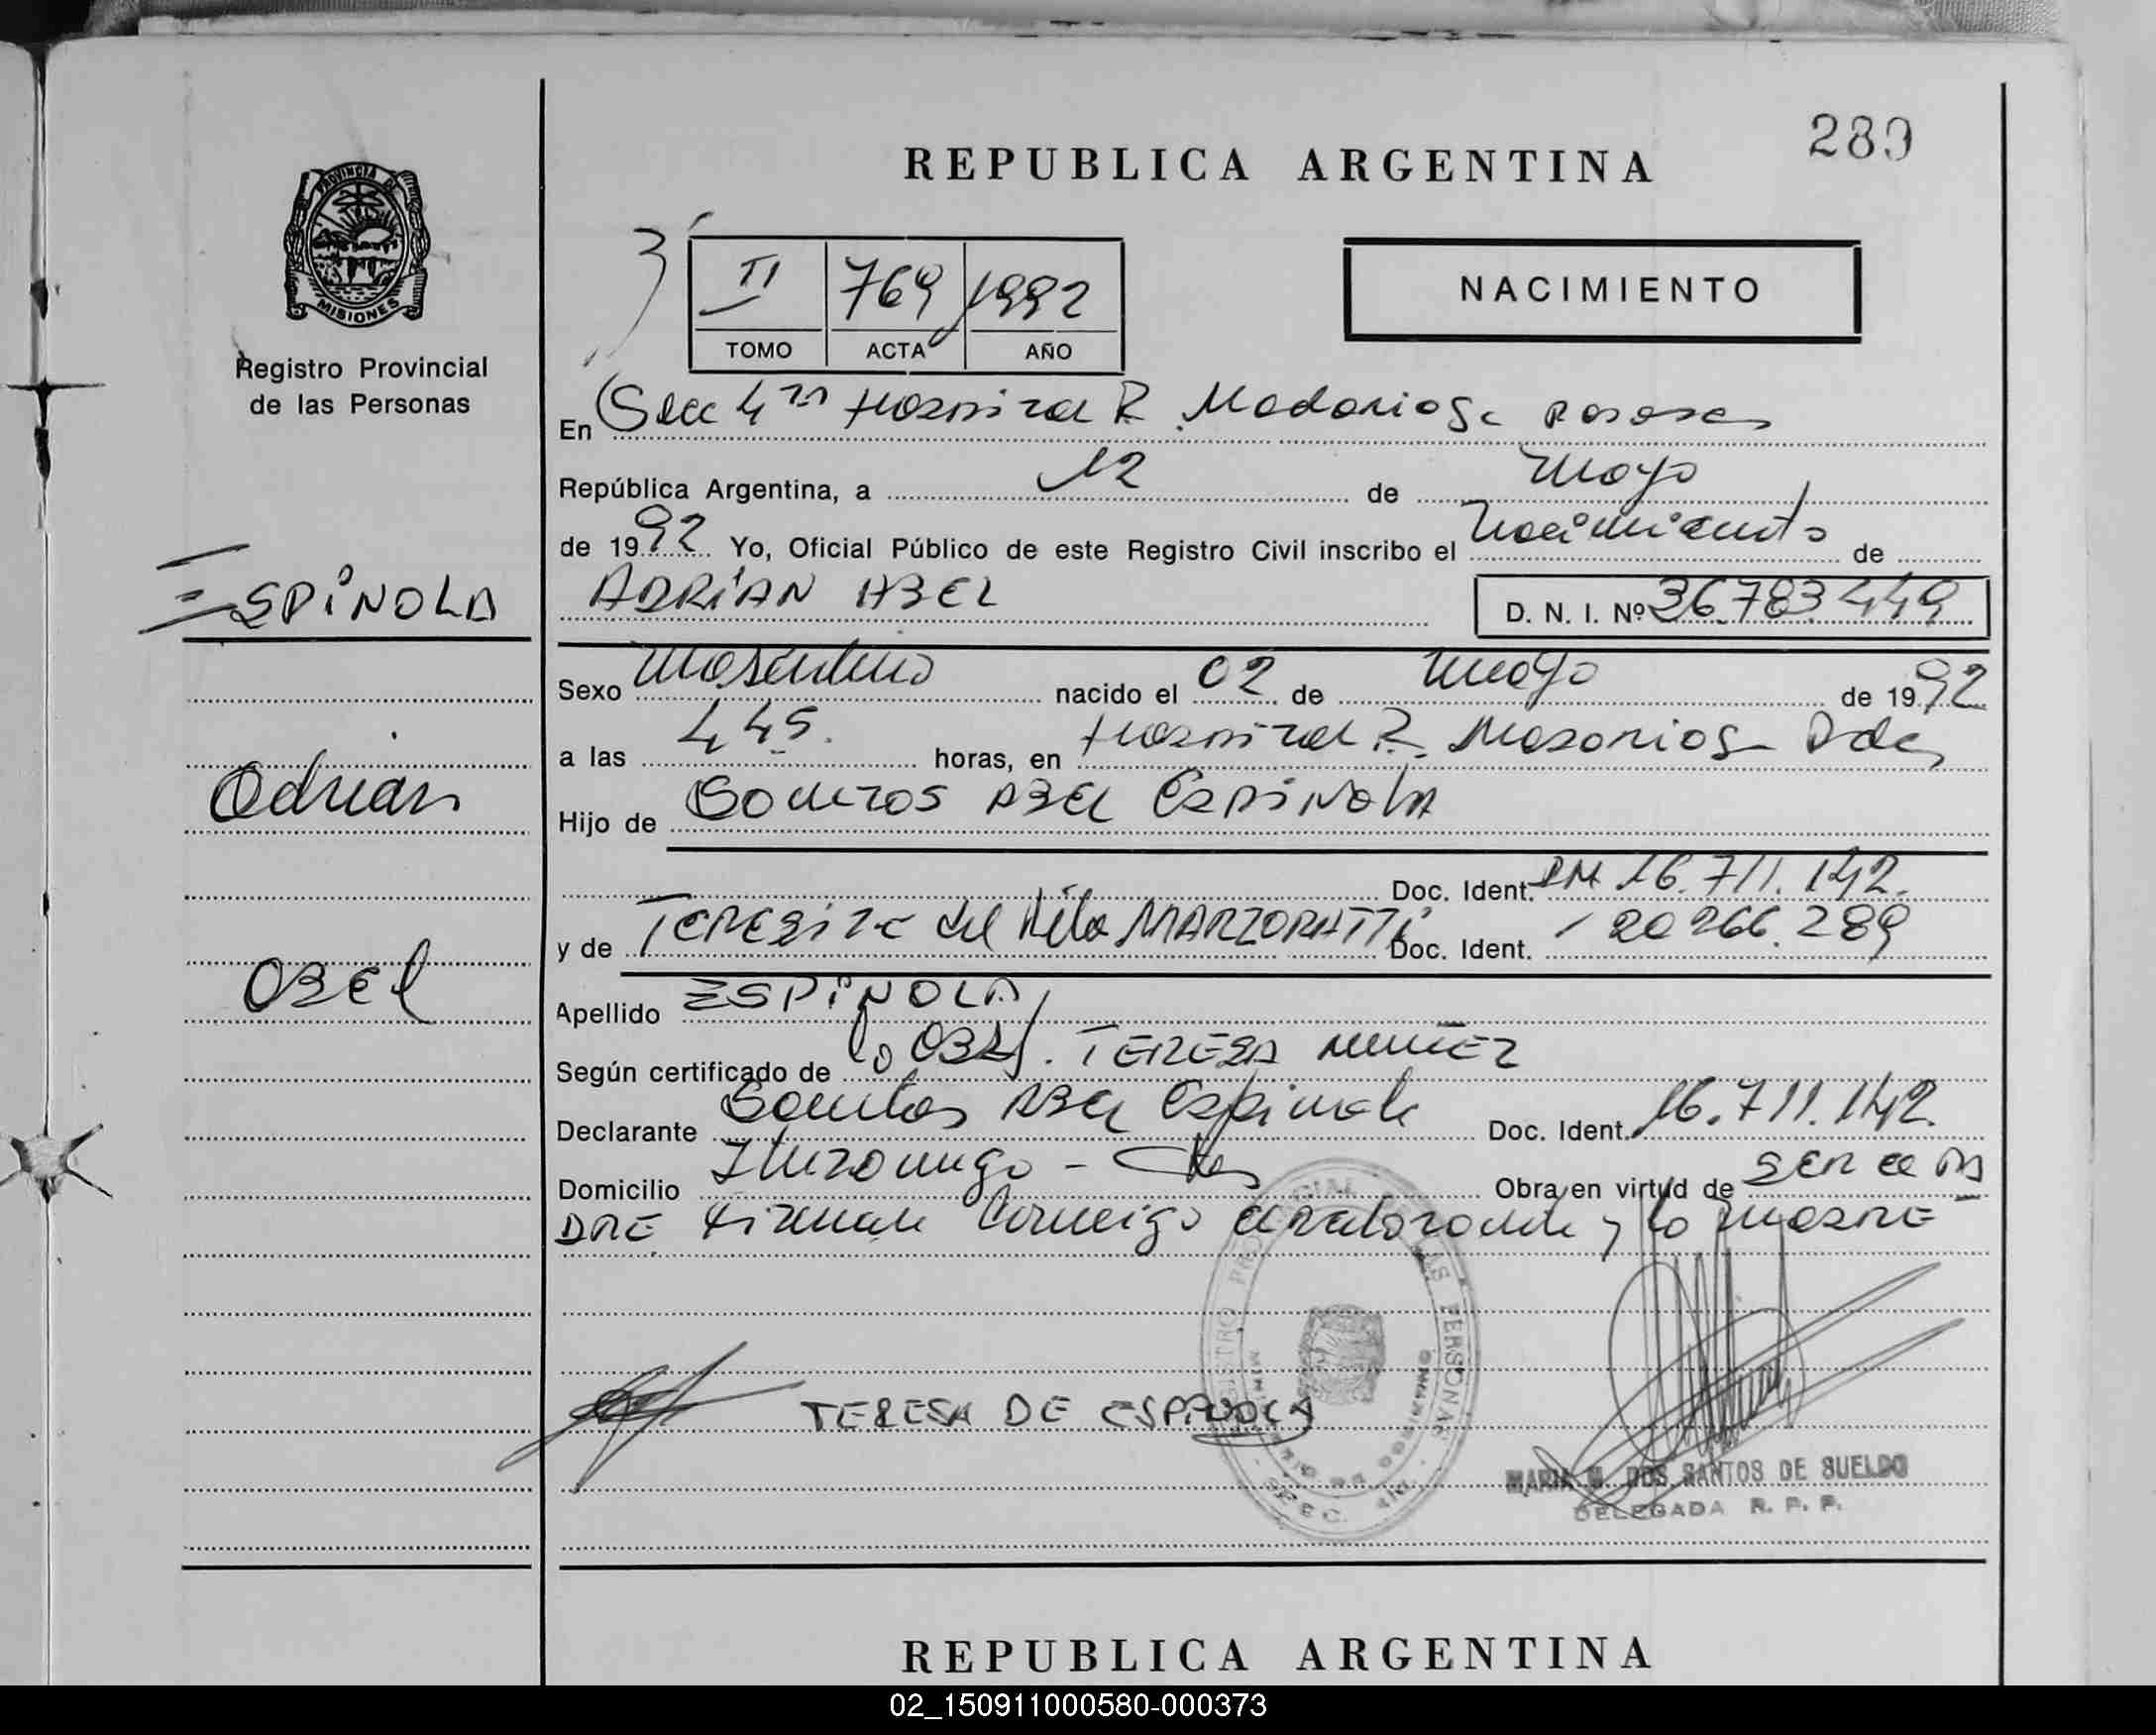 289
REPUBLICA ARGENTINA
PROVINCIA DE
MISIONES
Registro Provincial
de las Personas
II 769 1992
TOMO ACTA AÑO
NACIMIENTO
En Secc 4ta Hospital R. Madariaga Posadas
República Argentina, a 12 de Mayo
de 1992 Yo, Oficial Público de este Registro Civil inscribo el Nacimiento de
ESPINOLA
ADRIAN ABEL D. N. I. Nº 36.783.449
Sexo Masculino nacido el 02 de Mayo de 1992
a las 4,45. horas, en Hospital R. Madariaga Pdas
Adrian
Hijo de Santos ABEL ESPINOLA
Doc. Ident. DNI 16.711.142.
y de TERESITA del Niño MARZORATTI Doc. Ident. 20 266.289
Abel
Apellido ESPINOLA
Según certificado de la Obst. TERESA NUÑEZ
Declarante Santos Abel Espinola Doc. Ident. 16.711.142.
Domicilio Ituzaingo - Ctes Obra en virtud de SER EL PA
DRE Firman Conmigo el declarante y la MADRE
TERESA DE ESPINOLA
REGISTRO PROVINCIAL DE LAS PERSONAS
MINISTERIO DE GOBIERNO
MARIA M. DOS SANTOS DE SUELDO
DELEGADA R. P. P.
REPUBLICA ARGENTINA
02_150911000580-000373